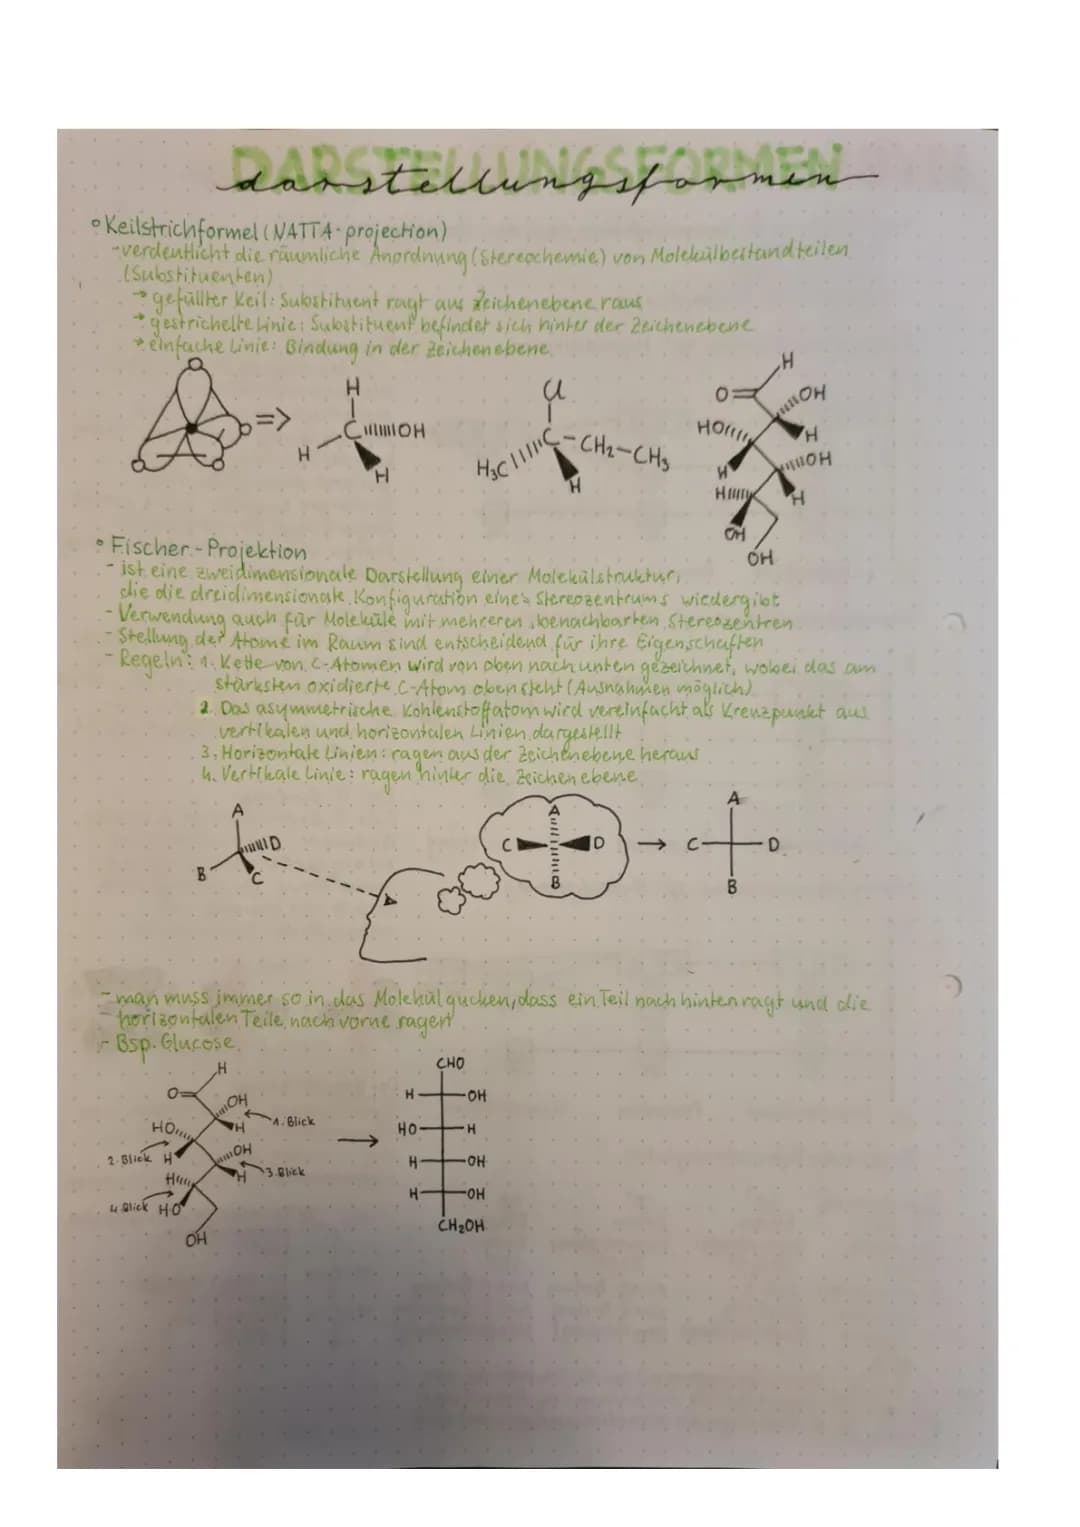 DARSTELLUNGSFORMEN
darstellungsformen
° Keilstrichformel (NATTA-projection)
- verdeutlicht die räumliche Anordnung (Stereochemie) von Molekülbestandteilen
(Substituenten)
→ gefüllter Keil: Substituent ragt aus Zeichenebene raus
→ gestrichelte Linie: Substituent befindet sich hinter der Zeichenebene
→ einfache Linie: Bindung in der Zeichenebene
=> H C OH H H
Cl H₃C C-CH₂-CH₃ H
H O OH HO H H OH H H OH OH
° Fischer-Projektion
- ist eine zweidimensionale Darstellung einer Molekülstruktur,
die die dreidimensionale Konfiguration eines Stereozentrums wiedergibt
- Verwendung auch für Moleküle mit mehreren benachbarten Stereozentren
- Stellung der Atome im Raum sind entscheidend für ihre Eigenschaften
- Regeln: 1. Kette von C-Atomen wird von oben nach unten gezeichnet, wobei das am
stärksten oxidierte C-Atom oben steht (Ausnahmen möglich)
2. Das asymmetrische Kohlenstoffatom wird vereinfacht als Kreuzpunkt aus
vertikalen und horizontalen Linien dargestellt
3. Horizontale Linien: ragen aus der Zeichenebene heraus
4. Vertikale Linie: ragen hinter die Zeichenebene
A D B C
A C D B →
A C D B
- man muss immer so in das Molekül gucken, dass ein Teil nach hinten ragt und die
horizontalen Teile nach vorne ragen
- Bsp. Glucose
H
O OH
H 1. Blick
HO
2. Blick H OH
H 3. Blick
H
4. Blick HO
OH
→
CHO
H OH
HO H
H OH
H OH
CH₂OH